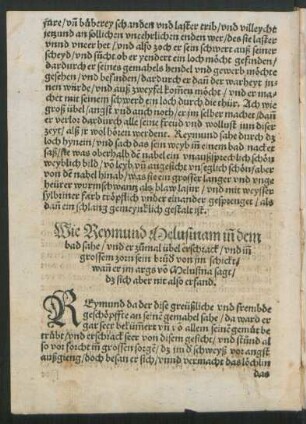 jüre/vñ bůberey schanden vnd laster trib/vnd villeycht
jetzund an sollichen vneerlichen enden wer/des sie laster
vnnd vneer het/vnd also zoch er sein schwert auß seiner
scheyd/vnd sůcht ob er yendert ein loch möcht gefinden/
dardurch er seines gemahels hendel vnd gewerb möchte
gesehen/vnd befinden/dardurch er dañ der warheyt in-
nen würde/vnd auß zweyfel kom̃en möcht/vnd er ma-
chet mit seinem schwerd ein loch durch die thür. Ach wie
groß übel/angst vnd auch not/er im selber machet/dañ
er verlor dardurch alle seine freud vnd wollust inn diser
zeyt/als jr wol hören werdent. Reymund sahe durch dz
loch hyneyn/vnd sach das sein weyb in einem bad nacket
saß/sie was oberhalb dē nabel ein vnaussprechlich schön
weyblich bild/vō leyb vñ angesicht vnseglich schön/aber
von dē nabel hinab/was sie ein grosser langer vnd vnge
heürer wormschwantz als blaw lasur/vnd mit weysser
sylbriner farb tröpflich vnder einander gesprenget/als
dañ ein schlang gemeyncklich gestalt ist.
Wie Reymund Melusinam in dem
bad sahe/vnd er zůmal übel erschrack/vnd in
grossem zorn sein brůd von jm schickt/
wañ er im args vō Melusina sagt/
dz sich aber nit also erfand.
REymund da der dise greüßliche vnd frembde
geschöpffte an seine gemahel sahe/da ward er
gar seer bekümert vñ vō allem seine gemüt be
trübt/vnd erschrack seer von disem gesicht/vnd stünd al
so vor forcht in grossen sorgē/dz im d schweyß vor angst
außgieng/doch besan er sich/vnnd vermacht das löchlin
das